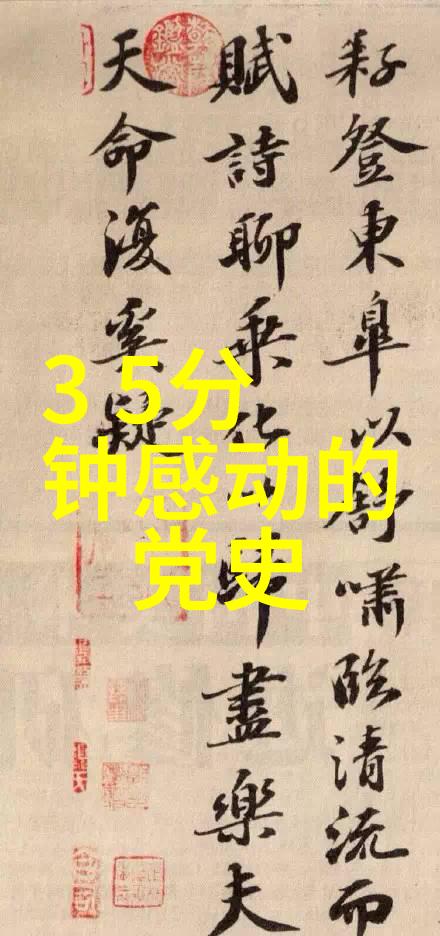 耔登東皋以舒嘯臨清流而
賦詩聊乘化以歸盡樂夫
天命復奚疑
3 5分
钟感动的
党史